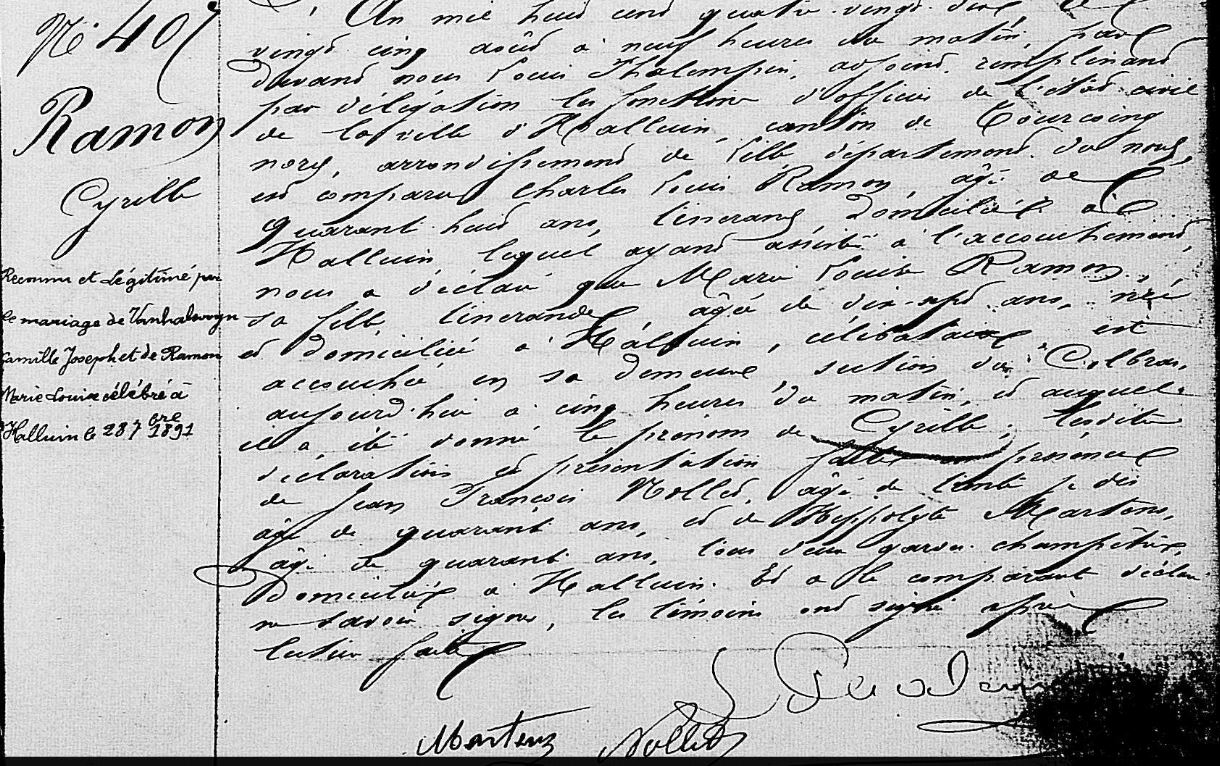 N° 407
Ramon
Cyrille
Reconnu et légitimé par
le mariage de Vanhalwyn
Camille Joseph et de Ramon
Marie Louise célébré à
Halluin le 28 7bre 1891
An mil huit cent quatre vingt dix, le
vingt cinq août à neuf heures du matin, par
devant nous Louis Thelempin, adjoint, remplissant
par délégation les fonctions d'officier de l'état-civil
de la ville d'Halluin, canton de Tourcoing
nord, arrondissement de Lille, département du nord,
est comparu Charles Louis Ramon, âgé de
quarante huit ans, tisserand domicilié à
Halluin lequel ayant assisté à l'accouchement,
nous a déclaré que Marie Louise Ramon,
sa fille, tisserande, âgée de dix-sept ans, née
et domiciliée à Halluin, célibataire, est
accouchée en sa demeure, section du Colbras,
aujourd'hui à cinq heures du matin, et auquel
il a été donné le prénom de Cyrille; lesdites
déclaration et présentation faites en présence
de Jean François Nollet, âgé de
âgé de quarante ans, et de Hippolyte Martens,
âgé de quarante ans, tous deux gardes champêtres,
domiciliés à Halluin. Et a le comparant déclaré
ne savoir signer, les témoins ont signé après
lecture faite
Martens Nollet